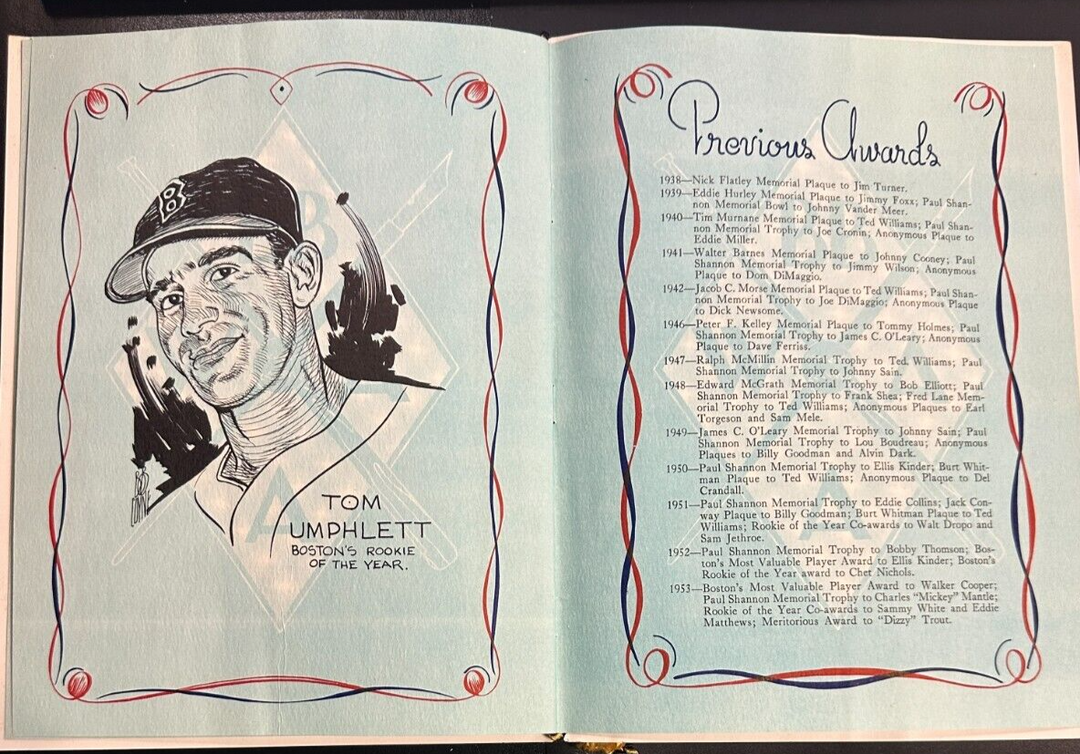 B
TOM
UMPHLETT
BOSTON'S ROOKIE
OF THE YEAR.
Previous Awards
1938—Nick Flatley Memorial Plaque to Jim Turner.
1939—Eddie Hurley Memorial Plaque to Jimmy Foxx; Paul Shan-
non Memorial Bowl to Johnny Vander Meer.
1940—Tim Murnane Memorial Plaque to Ted Williams; Paul Shan-
non Memorial Trophy to Joe Cronin; Anonymous Plaque to
Eddie Miller.
1941—Walter Barnes Memorial Plaque to Johnny Cooney; Paul
Shannon Memorial Trophy to Jimmy Wilson; Anonymous
Plaque to Dom DiMaggio.
1942—Jacob C. Morse Memorial Plaque to Ted Williams; Paul Shan-
non Memorial Trophy to Joe DiMaggio; Anonymous Plaque
to Dick Newsome.
1946—Peter F. Kelley Memorial Plaque to Tommy Holmes; Paul
Shannon Memorial Trophy to James C. O'Leary; Anonymous
Plaque to Dave Ferriss.
1947—Ralph McMillin Memorial Trophy to Ted. Williams; Paul
Shannon Memorial Trophy to Johnny Sain.
1948—Edward McGrath Memorial Trophy to Bob Elliott; Paul
Shannon Memorial Trophy to Frank Shea; Fred Lane Mem-
orial Trophy to Ted Williams; Anonymous Plaques to Earl
Torgeson and Sam Mele.
1949—James C. O'Leary Memorial Trophy to Johnny Sain; Paul
Shannon Memorial Trophy to Lou Boudreau; Anonymous
Plaques to Billy Goodman and Alvin Dark.
1950—Paul Shannon Memorial Trophy to Ellis Kinder; Burt Whit-
man Plaque to Ted Williams; Anonymous Plaque to Del
Crandall.
1951—Paul Shannon Memorial Trophy to Eddie Collins; Jack Con-
way Plaque to Billy Goodman; Burt Whitman Plaque to Ted
Williams; Rookie of the Year Co-awards to Walt Dropo and
Sam Jethroe.
1952—Paul Shannon Memorial Trophy to Bobby Thomson; Bos-
ton's Most Valuable Player Award to Ellis Kinder; Boston's
Rookie of the Year award to Chet Nichols.
1953—Boston's Most Valuable Player Award to Walker Cooper;
Paul Shannon Memorial Trophy to Charles "Mickey" Mantle;
Rookie of the Year Co-awards to Sammy White and Eddie
Matthews; Meritorious Award to "Dizzy" Trout.